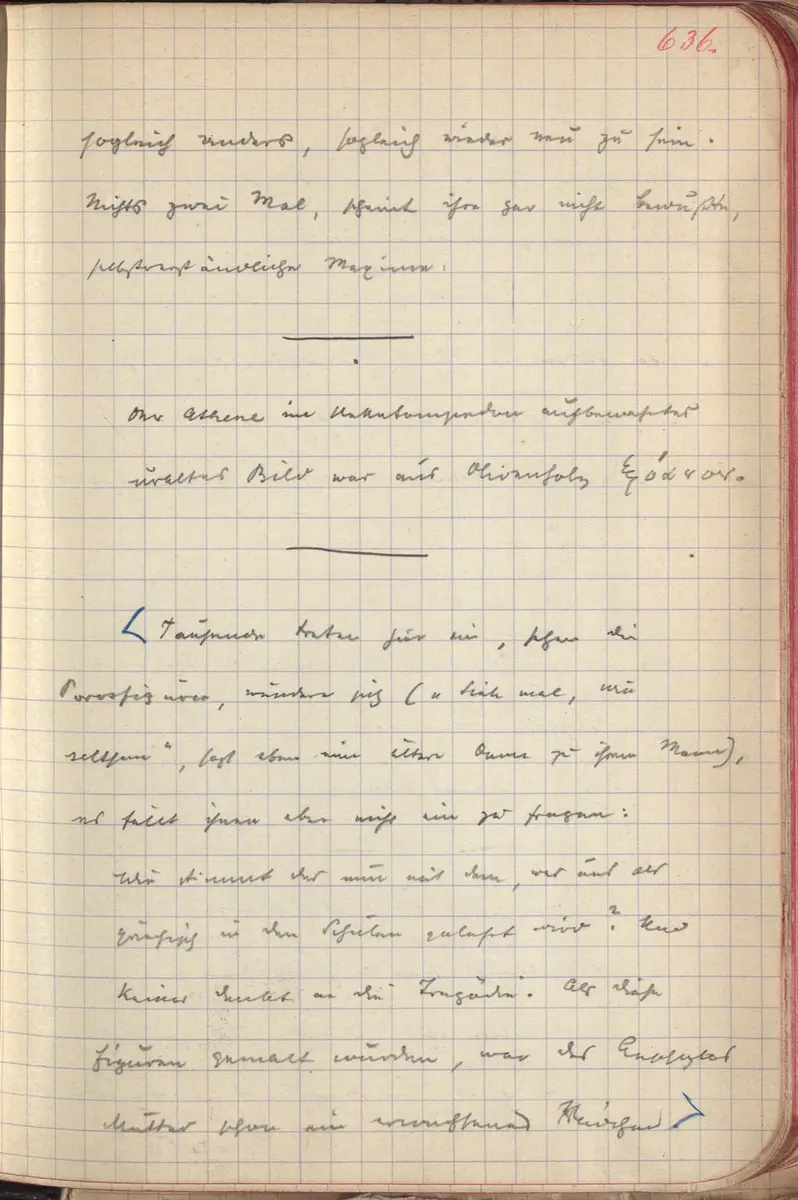 636.
sogleich anders, sogleich wieder neu zu sein.
Nichts zwei Mal, scheint ihre gar nicht bewußte,
selbstverständliche Maxime.
Der Athene im Hekatompedon aufbewahrtes
uraltes Bild war aus Olivenholz ξόανον.
< Tausende treten hier ein, sehen die
Porosfiguren, wundern sich („ Sieh mal, wie
seltsam“, sagt eben eine ältere Dame zu ihrem Mann),
es fällt ihnen aber nicht ein zu fragen:
Wie stimmt das nun mit dem, was uns als
griechisch in den Schulen gelehrt wird? Und
Keiner denkt an die Tragödie. Als diese
Figuren gemalt wurden, war des Aeschylos
Mutter schon ein erwachsenes Mädchen. >